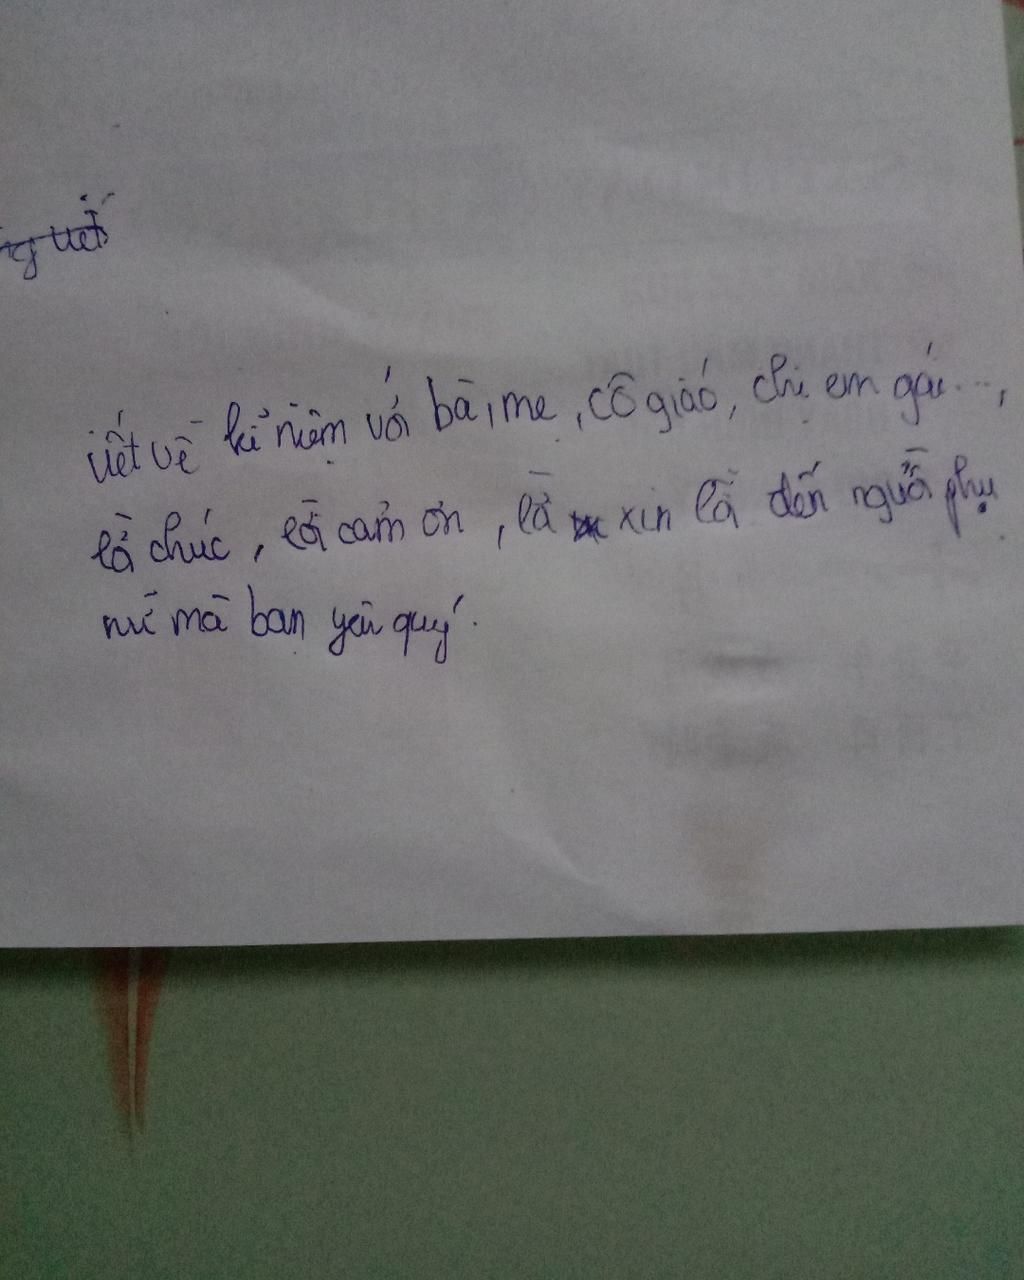 viết về kỉ niệm với bà, mẹ, cô giáo, chị em gái...,
lời chúc, lời cảm ơn, lời xin lỗi đến người phụ
nữ mà bạn yêu quý.